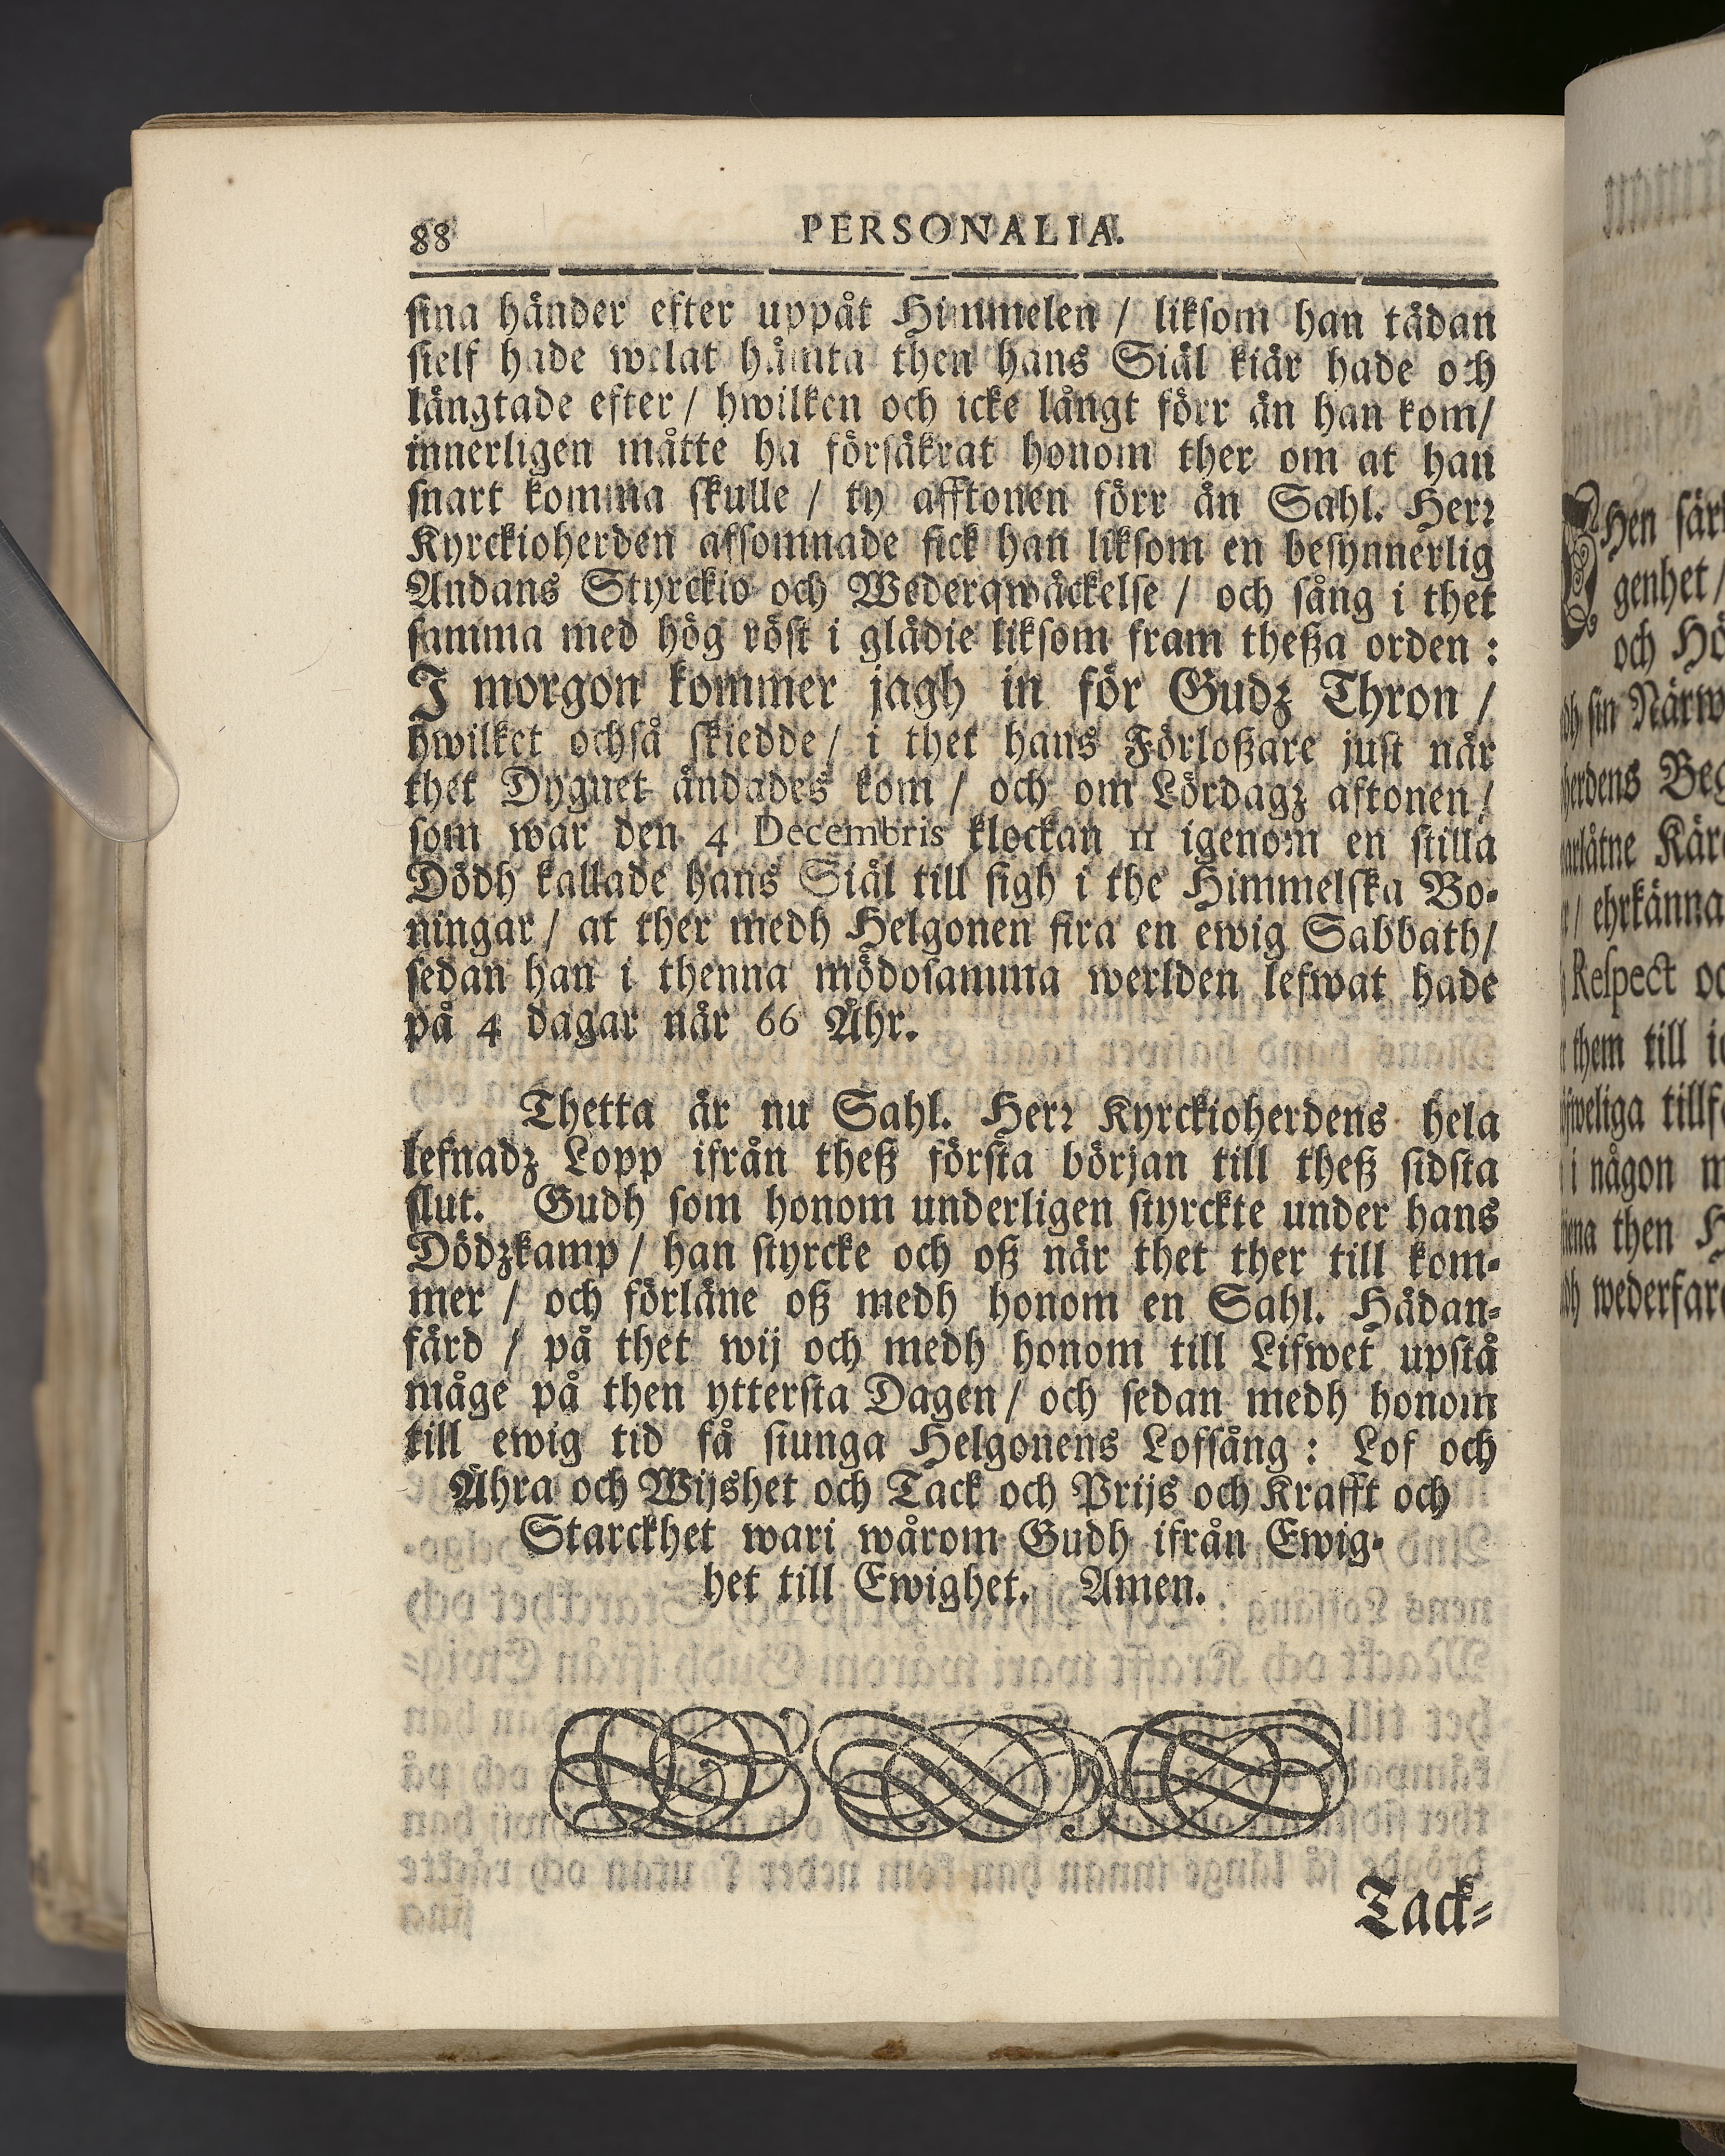 88 PERSONALIA.
sina händer efter uppåt Himmelen / liksom han tädan
sielf hade welat hämta then hans Siäl kiär hade och
längtade efter / hwilken och icke långt förr än han kom /
innerligen måtte ha försäkrat honom ther om at han
snart komma skulle / ty afftonen förr än Sahl. Herr
Kyrckioherden afsomnade fick han liksom en besynnerlig
Andans Styrckio och Wederqwäckelse / och sång i thet
samma med hög röst i glädie liksom fram theßa orden :
I morgon kommer jagh in för Gudz Thron /
hwilket ochså skiedde / i thet hans Förloßare just när
thet Dygnet ändades kom / och om Lördagz aftonen /
som war den 4 Decembris klockan 11 igenom en stilla
Dödh kallade hans Siäl till sigh i the Himmelska Bo-
ningar / at ther medh Helgonen fira en ewig Sabbath /
sedan han i thenna mödosamma werlden lefwat hade
på 4 dagar när 66 Åhr.
Thetta är nu Sahl. Herr Kyrckioherdens hela
lefnadz Lopp ifrån theß första början till theß sidsta
slut. Gudh som honom underligen styrckte under hans
Dödzkamp / han styrcke och oß när thet ther till kom-
mer / och förläne oß medh honom en Sahl. Hädan-
färd / på thet wij och medh honom till Lifwet upstå
måge på then yttersta Dagen / och sedan medh honom
till ewig tid få siunga Helgonens Lofsång : Lof och
Ähra och Wijshet och Tack och Prijs och Krafft och
Starckhet wari wårom Gudh ifrån Ewig-
het till Ewighet. Amen.
Tack-
Hen sär
genhet /
och Hö
sin Närw
herdens Beg
arlåtne Kär
/ ehrkänna
Respect oc
them till i
i någon m
then H
wederfar